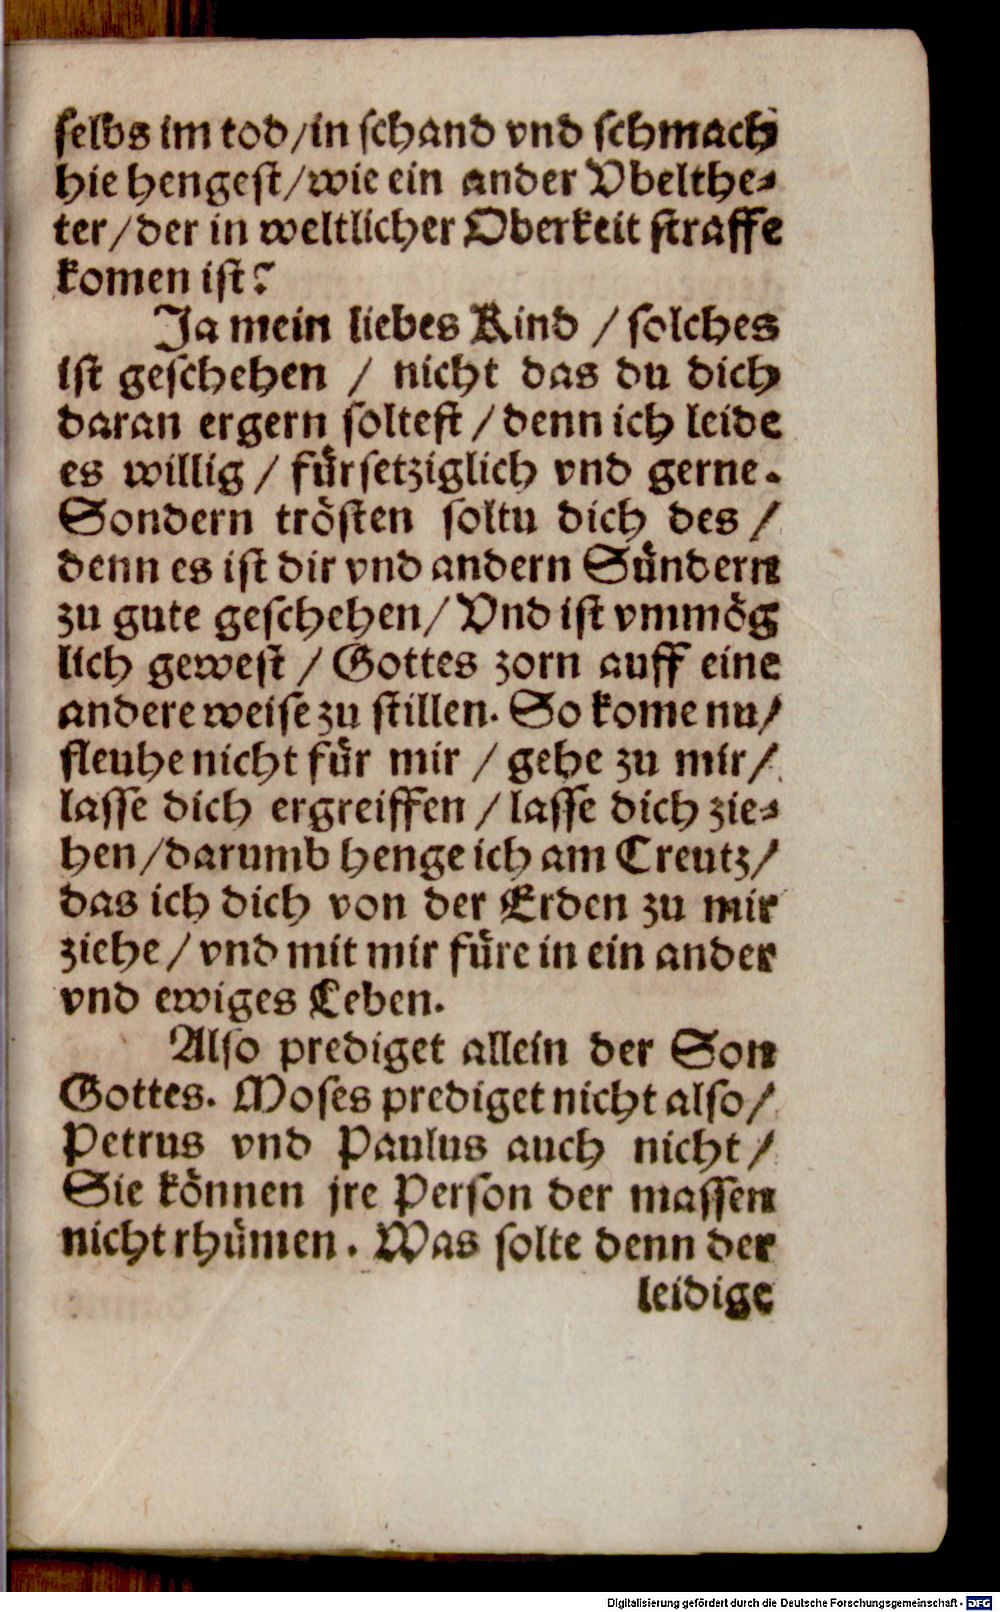 selbs im tod/in schand vnd schmach
hie hengest/wie ein ander Vbelthe-
ter/der in weltlicher Oberkeit straffe
komen ist?
Ja mein liebes Kind / solches
ist geschehen / nicht das du dich
daran ergern soltest / denn ich leide
es willig / fürsetziglich vnd gerne.
Sondern trösten soltu dich des /
denn es ist dir vnd andern Sündern
zu gute geschehen/ Vnd ist vmmög
lich gewest / Gottes zorn auff eine
andere weise zu stillen. So kome nu/
fleuhe nicht für mir / gehe zu mir/
lasse dich ergreiffen / lasse dich zie-
hen/darumb henge ich am Creutz/
das ich dich von der Erden zu mir
ziehe / vnd mit mir füre in ein ander
vnd ewiges Leben.
Also prediget allein der Son
Gottes. Moses prediget nicht also/
Petrus vnd Paulus auch nicht /
Sie können jre Person der massen
nicht rhümen. Was solte denn der
leidige
Digitalisierung gefördert durch die Deutsche Forschungsgemeinschaft - DFG